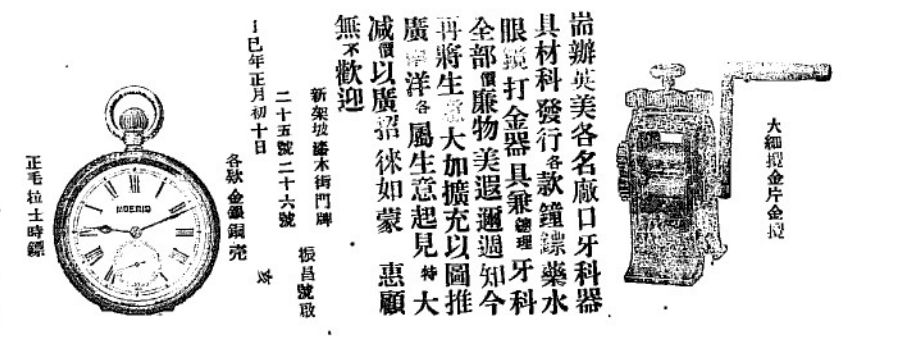 大細攪金片金攪
耑辦英美各名廠口牙科器
具材料發行各款鐘鏢藥水
眼鏡打金器具兼總理牙科
全部價廉物美遐邇週知今
再將生意大加擴充以圖推
廣南洋各屬生意起見特大
减價以廣招徠如蒙 惠顧
無不歡迎
新架坡漆木街門牌
二十五號二十六號
振昌號啟
巳年正月初十日
各欵金銀銅壳
MOERIS
正毛拉士時鏢